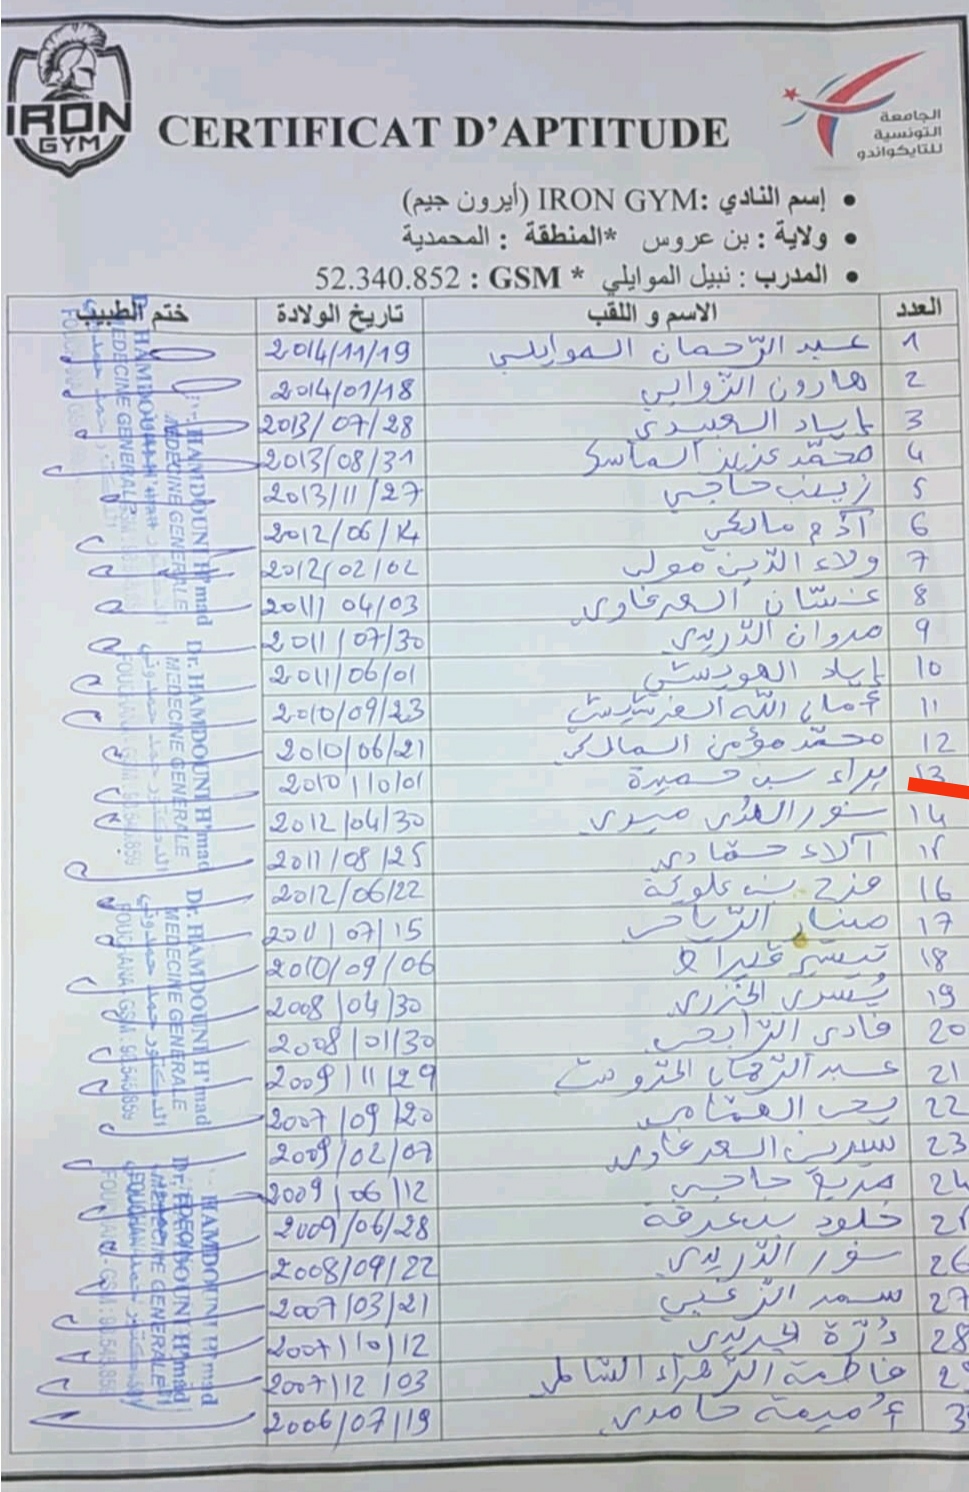 IRON
GYM
CERTIFICAT D'APTITUDE
الجامعة
التونسية
للتايكواندو
إسم النادي :IRON GYM (أيرون جيم)
ولاية : بن عروس *المنطقة : المحمدية
المدرب : نبيل الموايلي * GSM : 52.340.852
العدد الاسم و اللقب تاريخ الولادة ختم الطبيب
1 عبد الرّحمان الموايلي 2014/11/19
2 هارون الزوابي 2014/01/18
3 إياد العبيدي 2013/07/28
4 محمّد عزيز الماسي 2013/08/31
5 زينب حاجي 2013/11/27
6 آدم مالكي 2012/06/14
7 ولاء الدّين مولى 2012/02/02
8 غسّان السعرغاوي 2011/04/03
9 مروان الدّريدي 2011/07/30
10 إياد 2011/06/01
11 أمان الله 2010/09/23
12 محمّد مؤمن المالكي 2010/06/21
13 براء بن حميدة 2010/10/01
14 نور الهدى ميري 2012/04/30
15 آلاء حمّادي 2011/08/25
16 فرح بن علوكة 2012/06/22
17 منار الرّياحي 2011/07/15
18 تيسير قيراط 2010/09/06
19 يُسرى الخزري 2008/04/30
20 فادي الرّابحي 2008/01/30
21 عبد الرّحمان 2009/11/29
22 يحي 2007/09/20
23 سيرين السعرغاوي 2009/02/07
24 مريم حاجي 2009/06/12
25 خلود بن عرفة 2009/06/28
26 نور الدّريدي 2008/09/22
27 سمر الزغبي 2007/03/21
28 دُرّة الجريدي 2007/10/12
29 فاطمة الزّهراء الشّاطر 2007/12/03
30 أُميمة حامدي 2006/07/19
Dr. HAMDOUNI H'mad
MEDECINE GENERALE
الدكتور حمد حمدوني
FOUCHANA - GSM : 98.546.859